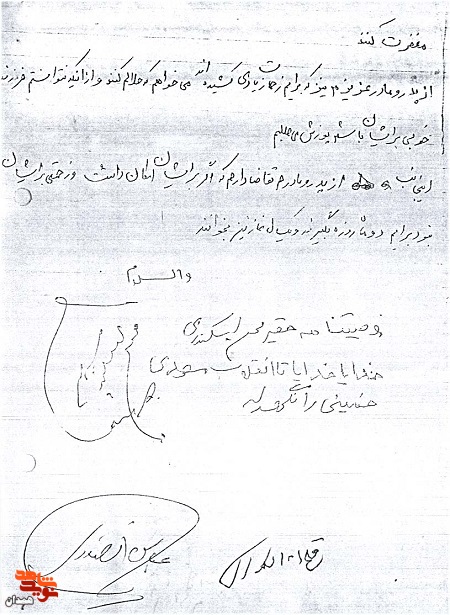 مغفرت کنند
از پدر و مادر عزیزم نیز که برایم زحمات زیادی کشیده اند می خواهم که حلالم کنند و از اینکه نتوانستم فرزند
خوبی برای ایشان باشم پوزش می طلبم
اینجانب از پدر و مادرم تقاضا دارم که اگر برایشان امکان داشت و زحمتی برایشان
نبود برایم دو ماه روزه بگیرند و یکسال نماز نیز بخوانند
والسلام
وصیتنامه حقیر محسن اسکندری
خدایا خدایا تا انقلاب مهدی
خمینی را نگهدار